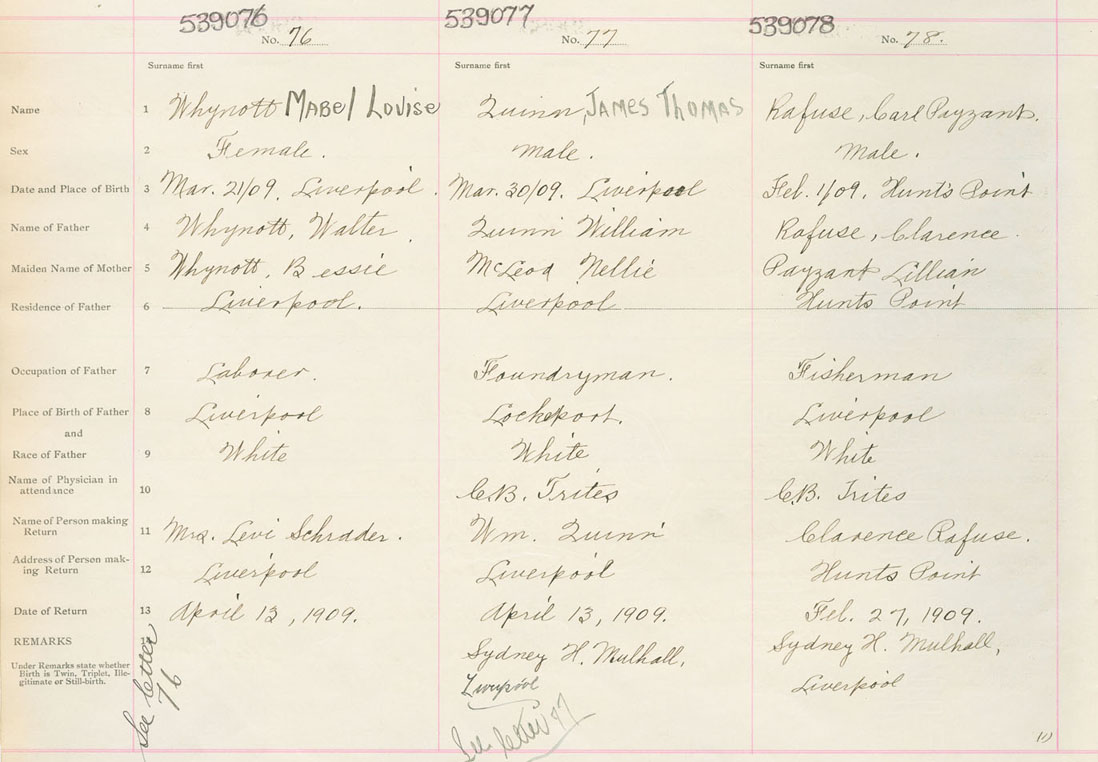 539076 539077 539078
No. 76 No. 77 No. 78.
Surname first Surname first Surname first
Name 1 Whynott MABEL LOUISE Quinn, JAMES THOMAS Rafuse, Carl Payzant.
Sex 2 Female. Male. Male.
Date and Place of Birth 3 Mar. 21/09. Liverpool. Mar. 30/09. Liverpool Feb. 1/09. Hunts Point
Name of Father 4 Whynott, Walter. Quinn William Rafuse, Clarence.
Maiden Name of Mother 5 Whynott, Bessie McLeod Nellie Payzant Lillian
Residence of Father 6 Liverpool. Liverpool Hunts Point
Occupation of Father 7 Laborer. Foundryman. Fisherman
Place of Birth of Father 8 Liverpool Lockeport. Liverpool
and
Race of Father 9 White White White
Name of Physician in
attendance 10 C.B. Trites C.B. Trites
Name of Person making
Return 11 Mrs. Levi Schrader. Wm. Quinn Clarence Rafuse.
Address of Person mak-
ing Return 12 Liverpool Liverpool Hunts Point
Date of Return 13 April 13, 1909. April 13, 1909. Feb. 27, 1909.
REMARKS Sydney H. Mulhall, Sydney H. Mulhall,
Under Remarks state whether
Birth is Twin, Triplet, Ille-
gitimate or Still-birth.
Liverpool Liverpool
See letter
76
See letter 77